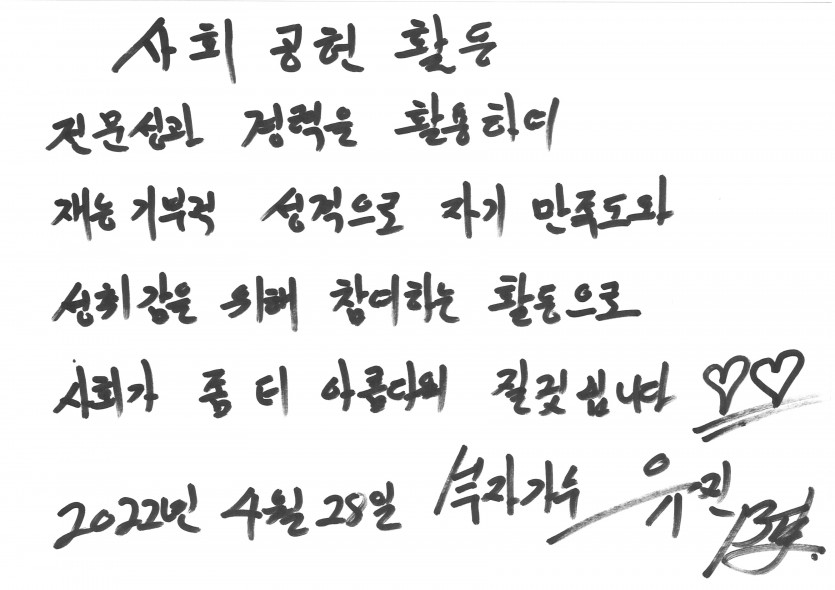 사회 공헌 활동
전문성과 경력을 활용하여
재능 기부적 성격으로 자기 만족도와
성취감을 위해 참여하는 활동으로
사회가 좀 더 아름다워 질것 입니다
2022년 4월 28일 부자가수 유진